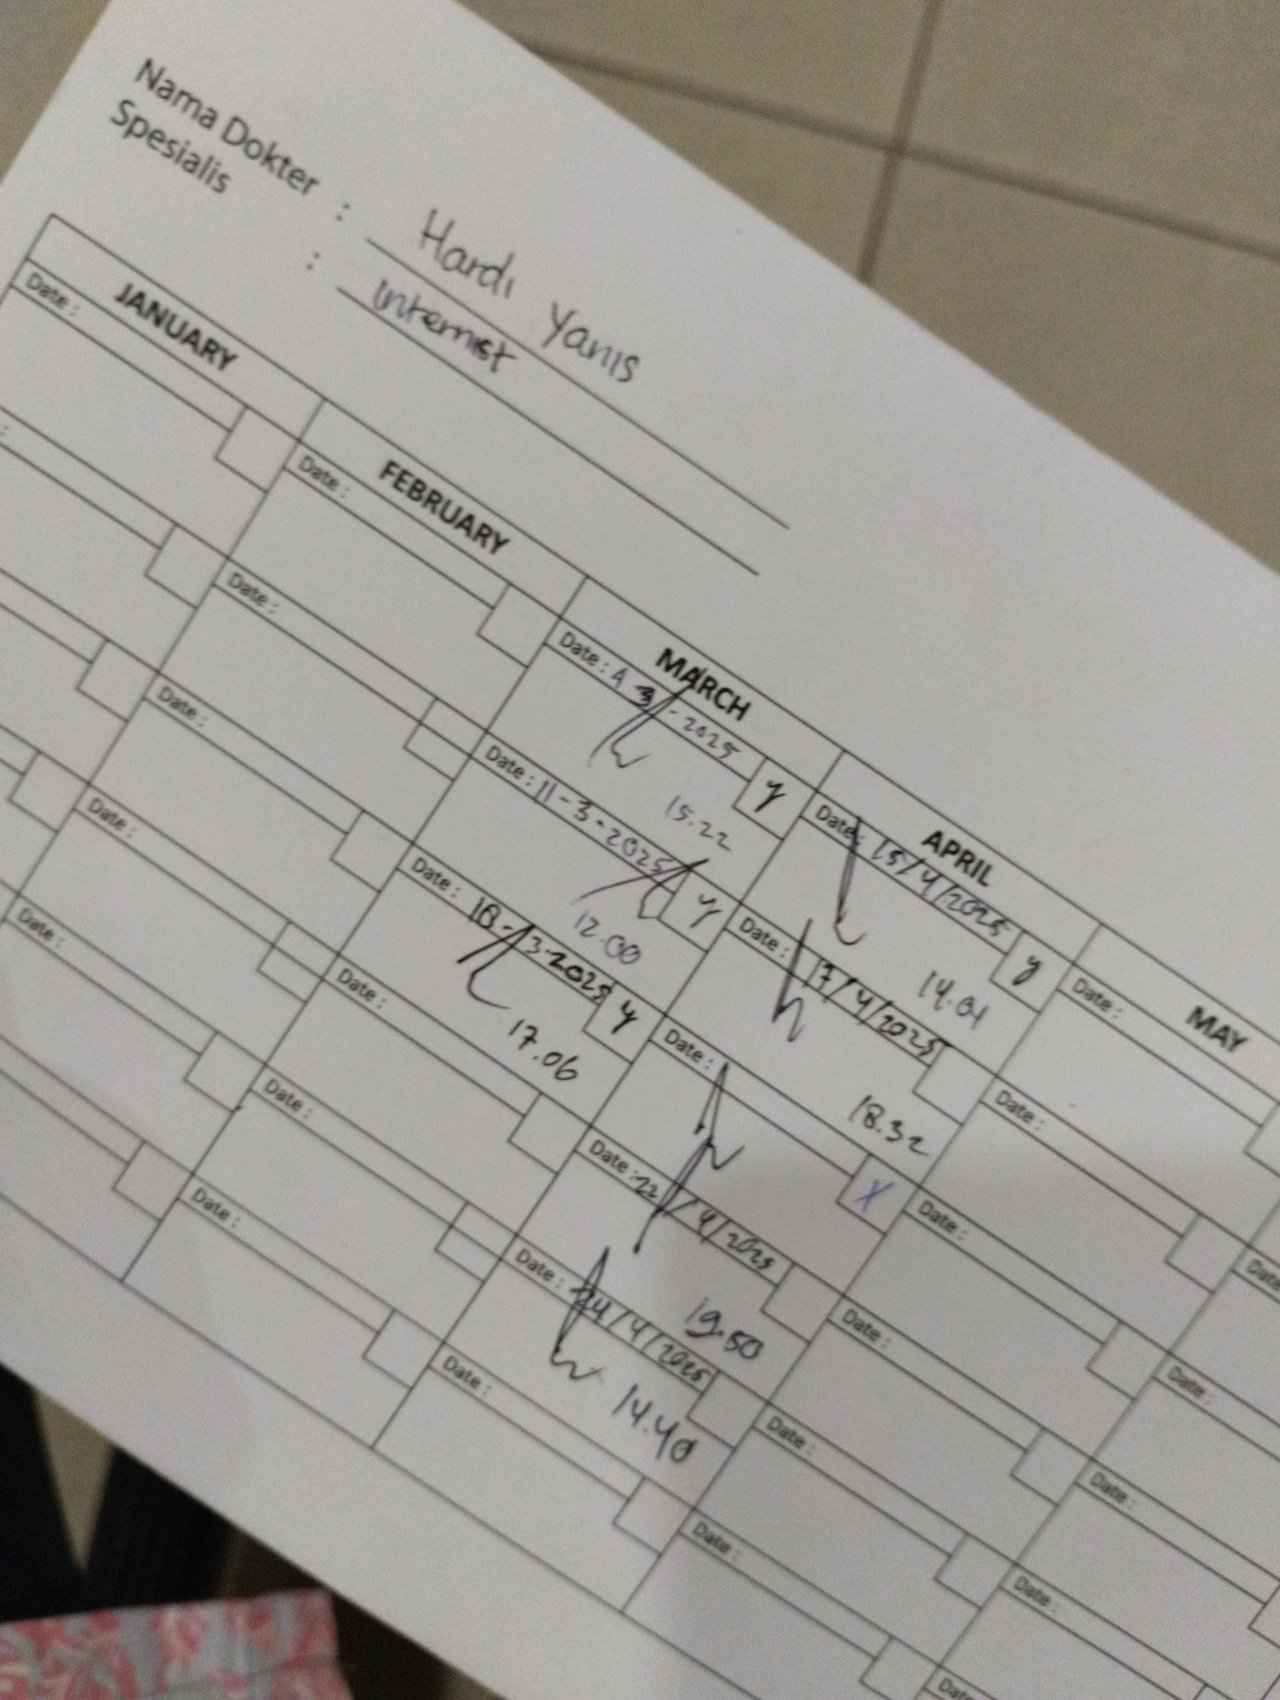 Nama Dokter : Hardi Yanis
Spesialis : Internist
JANUARY
Date :
:
FEBRUARY
Date :
Date :
Date :
Date :
Date :
MARCH
Date : 4 3 - 2025 y
15.22
Date : 11 - 3 - 2025 y
12.00
Date : 18 - 3 - 2025 y
17.06
Date :
Date :
Date :
APRIL
Date : 15/4/2025 y
14.01
Date : 17/4/2025
18.32
Date : X
Date : 22/4/2025
19.50
Date : 24/4/2025
14.40
Date :
MAY
Date :
Date :
Date :
Date :
Date :
Date :
Date :
Date :
Date :
Date :
Date :